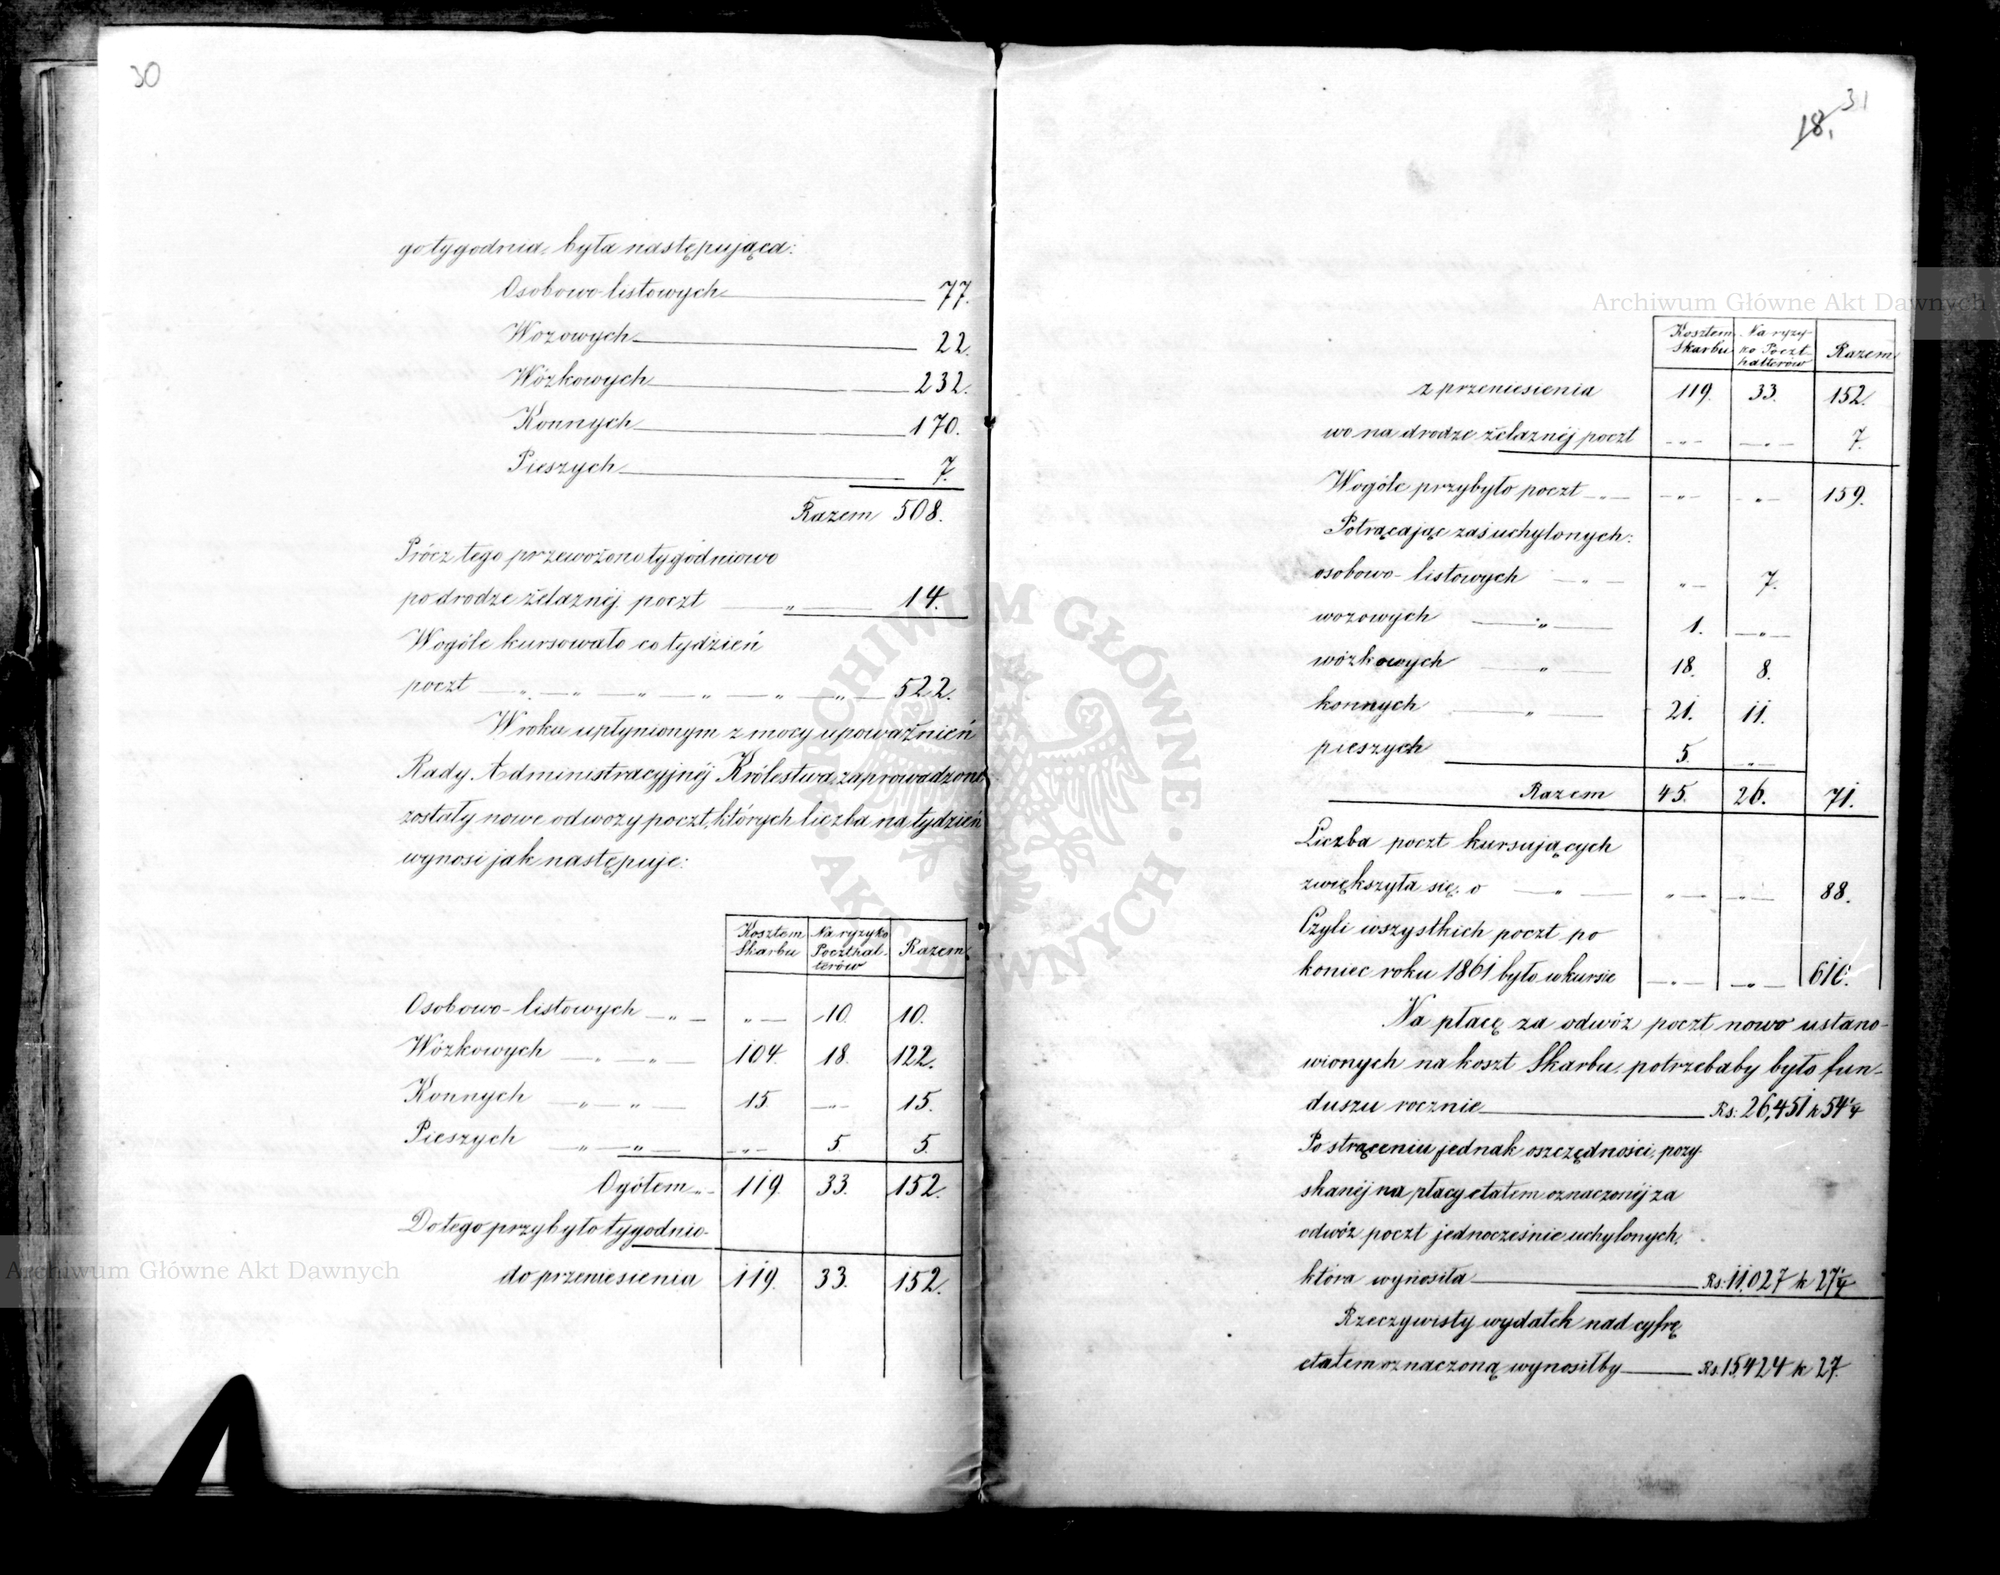 30
go tygodnia, była następująca:
Osobowo-listowych 77.
Wozowych 22.
Wózkowych 232.
Konnych 170.
Pieszych 7.
Razem 508.
Prócz tego przewożono tygodniowo
po drodze żelaznéj poczt „ 14.
Wogóle kursowało co tydzień
poczt „ „ „ „ „ „ 522.
W roku upłynionym z mocy upoważnień
Rady Administracyjnéj Królestwa, zaprowadzone
zostały nowe odwozy poczt, których liczba na tydzień
wynosi jak następuje:
Kosztem Skarbu Na ryzyko Poczthal-terów Razem
Osobowo-listowych „ „ 10. 10.
Wózkowych „ „ 104. 18. 122.
Konnych „ „ 15. „ 15.
Pieszych „ „ „ 5. 5.
Ogółem „ 119. 33. 152.
Do tego przybyło tygodnio-
do przeniesienia 119. 33. 152.
31
18.
Kosztem Skarbu Na ryzy-ko Poczt-halterów Razem
z przeniesienia 119. 33. 152.
wo na drodze żelaznéj poczt „ „ 7.
Wogóle przybyło poczt „ „ „ 159.
Potrącając zaś uchylonych:
osobowo-listowych „ „ 7.
wozowych „ 1. „
wózkowych „ 18. 8.
konnych „ 21. 11.
pieszych 5. „
Razem 45. 26. 71.
Liczba poczt kursujących
zwiększyła się o „ „ „ 88.
Czyli wszystkich poczt po
koniec roku 1861 było w kursie „ „ 610.
Na płacę za odwóz poczt nowo ustano-
wionych na koszt Skarbu, potrzebaby było fun-
duszu rocznie Rs. 26,451 k 54¼
Po strąceniu jednak oszczędności, pozy-
skanéj na płacy etatem oznaczonéj za
odwóz poczt jednocześnie uchylonych,
która wynosiła Rs. 11,027 k 27¼
Rzeczywisty wydatek nad cyfrę
etatem oznaczoną wynosiłby Rs. 15,424 k 27.
Archiwum Główne Akt Dawnych
Archiwum Główne Akt Dawnych
ARCHIWUM GŁÓWNE AKT DAWNYCH